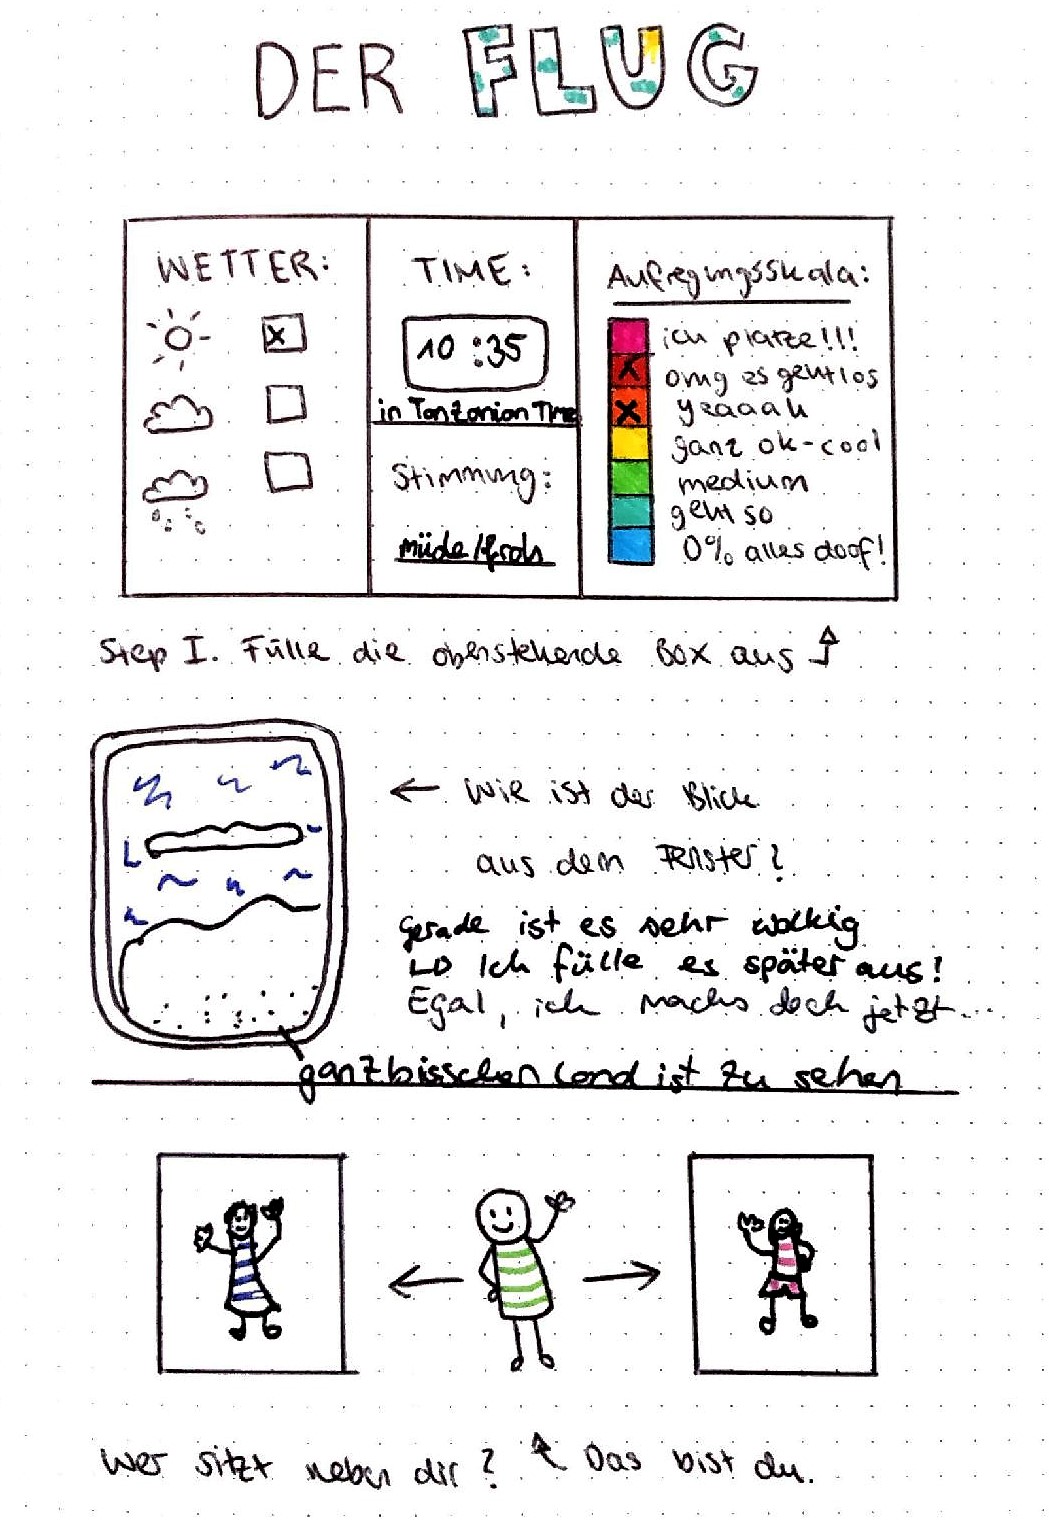 DER FLUG
WETTER:
x
TIME:
10:35
in Tanzanian Time
Stimmung:
müde/froh
Aufregungsskala:
ich platze!!!
x omg es geht los
x yeaaah
ganz ok-cool
medium
geht so
0% alles doof!
Step I. Fülle die obenstehende Box aus
← Wie ist der Blick
aus dem Fenster?
Gerade ist es sehr wolkig
↳ Ich fülle es später aus!
Egal, ich machs doch jetzt...
ganz bisschen Land ist zu sehen
Wer sitzt neben dir? Das bist du.